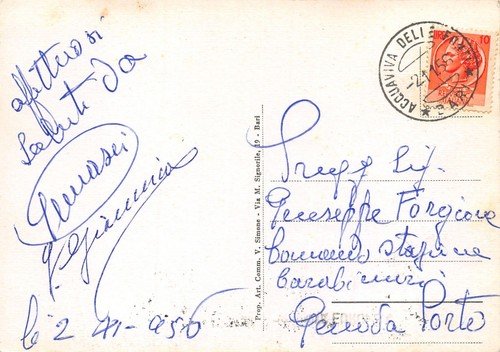 affettuosi
saluti da
Giannina
li 2 11-956
Prop. Art. Comm. V. Simone - Via M. Signorile, 19 - Bari
ACQUAVIVA DELLE FONTI
BARI
10
Pregg Sig.
Giuseppe Forgione
Comando stazione
Carabinieri
Genova Porto